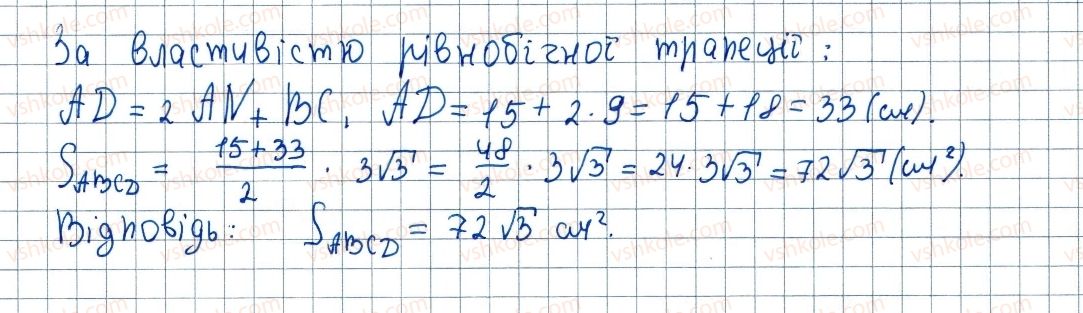 За властивістю рівнобічної трапеції:
AD = 2 AN + BC, AD = 15 + 2 · 9 = 15 + 18 = 33 (см).
S_ABCD = (15 + 33)/2 · 3√3 = 48/2 · 3√3 = 24 · 3√3 = 72√3 (см²).
Відповідь: S_ABCD = 72√3 см².